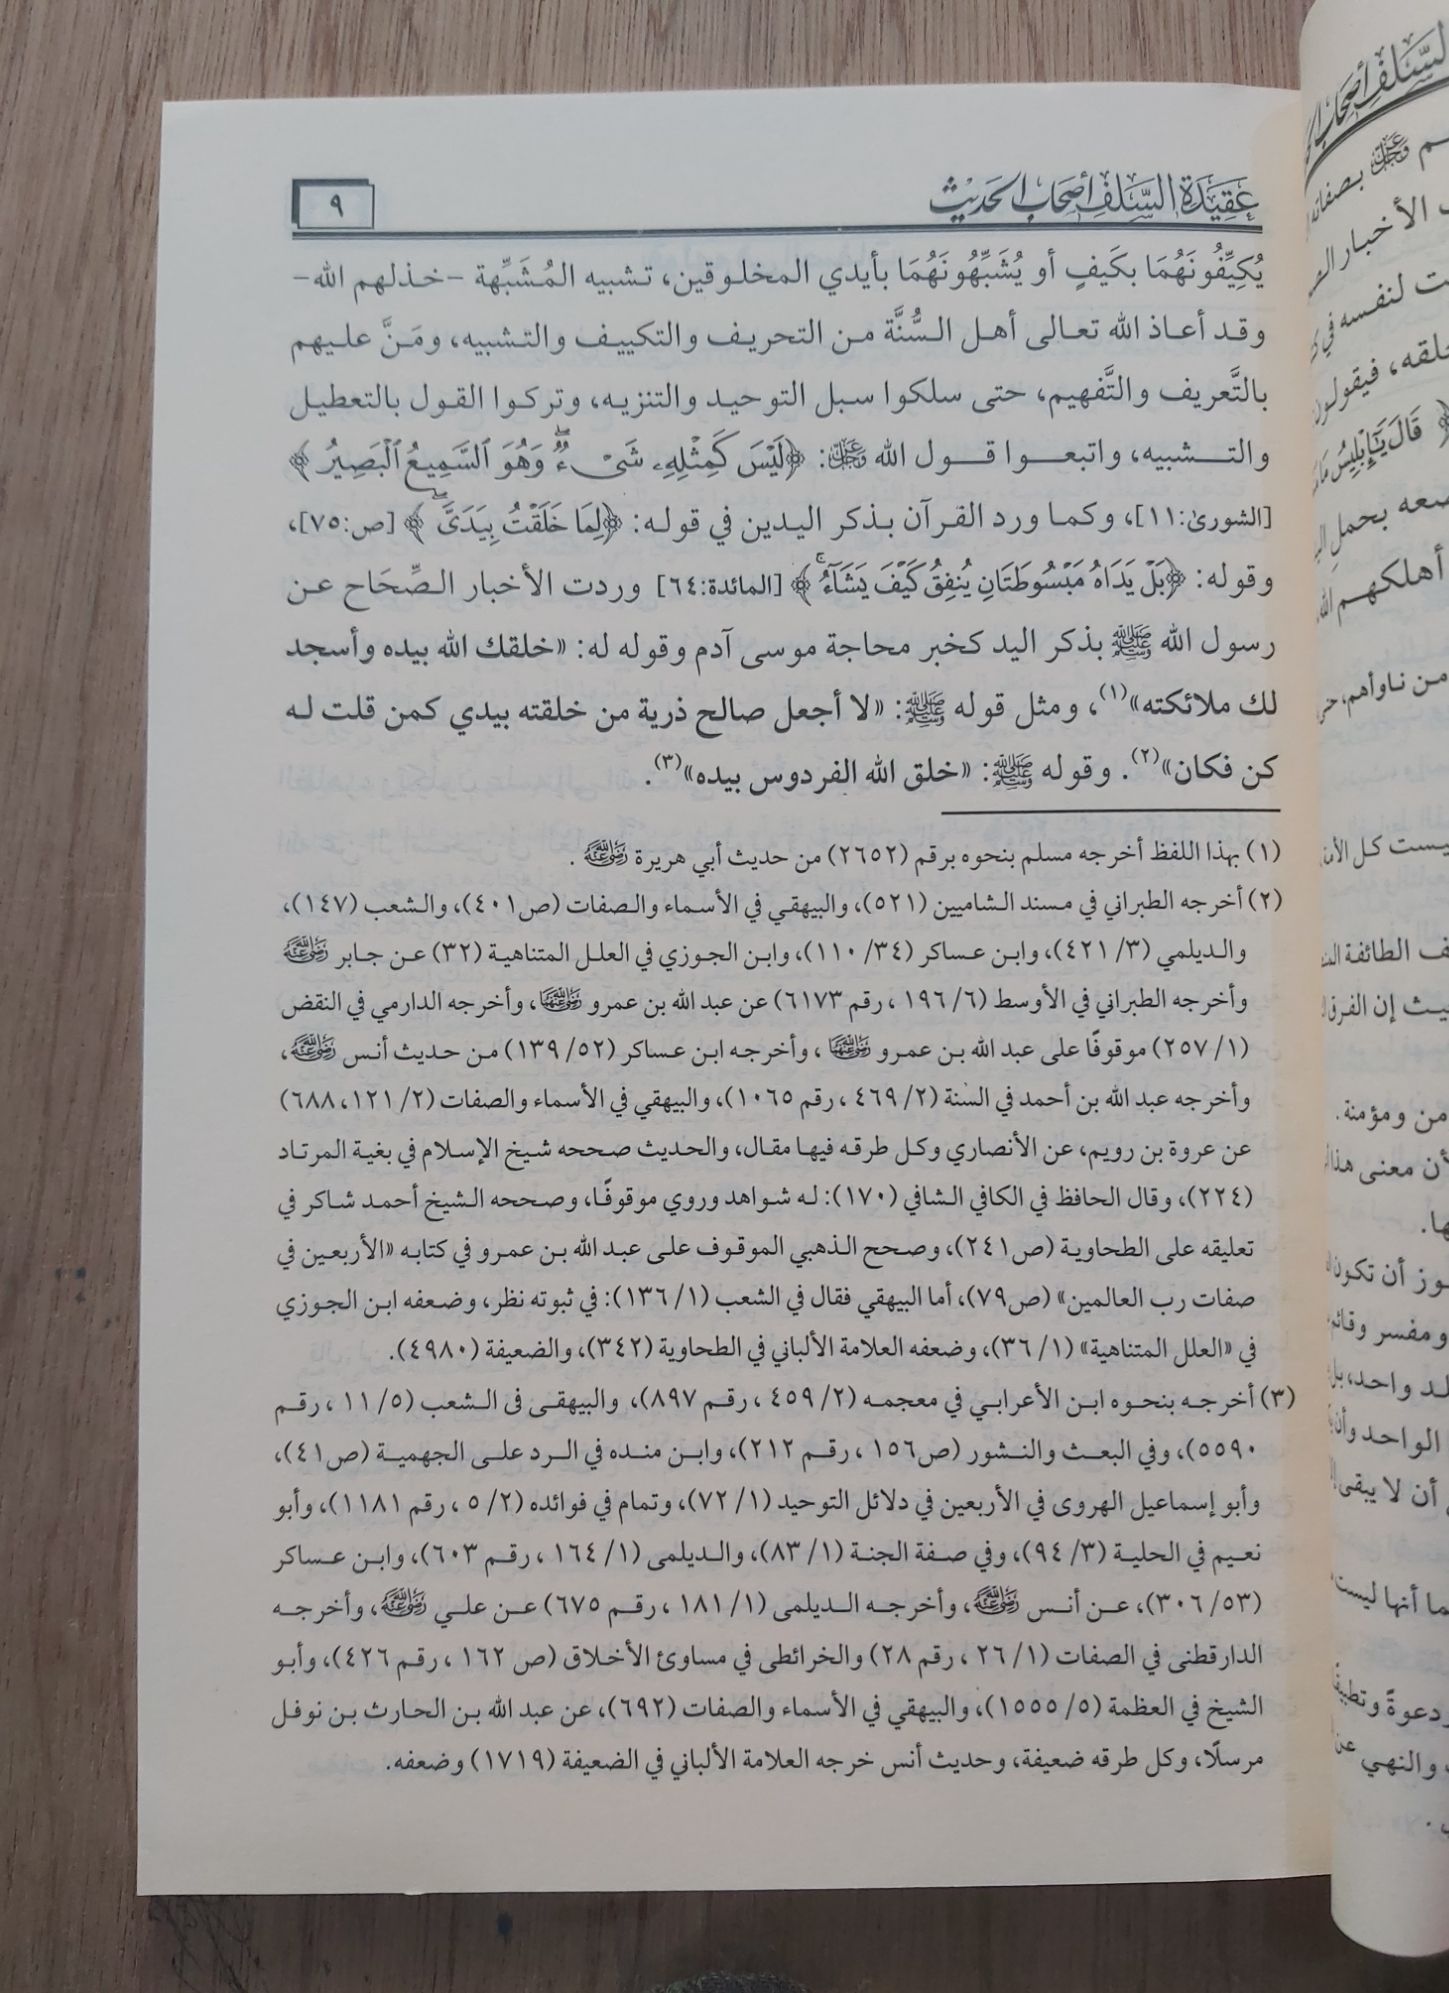 عَقِيدَة السَّلَفِ أَصْحَابِ الحَدِيثِ
٩
يُكَيِّفُونَهُمَا بكَيفٍ أو يُشَبِّهُونَهُمَا بأيدي المخلوقين، تشبيه المُشَبِّهة -خذلهم الله-
وقد أعاذ الله تعالى أهل السُّنَّة من التحريف والتكييف والتشبيه، ومَنَّ عليهم
بالتَّعريف والتَّفهيم، حتى سلكوا سبل التوحيد والتنزيه، وتركوا القول بالتعطيل
والتشبيه، واتبعوا قول الله عَزَّوَجَلَّ: ﴿لَيْسَ كَمِثْلِهِۦ شَىْءٌۖ وَهُوَ ٱلسَّمِيعُ ٱلْبَصِيرُ﴾
[الشورىٰ:١١]، وكما ورد القرآن بذكر اليدين في قوله: ﴿لِمَا خَلَقْتُ بِيَدَىَّۖ﴾ [ص:٧٥]،
وقوله: ﴿بَلْ يَدَاهُ مَبْسُوطَتَانِ يُنفِقُ كَيْفَ يَشَآءُۚ﴾ [المائدة:٦٤] وردت الأخبار الصِّحَاح عن
رسول الله ﷺ بذكر اليد كخبر محاجة موسى آدم وقوله له: «خلقك الله بيده وأسجد
لك ملائكته»(١)، ومثل قوله ﷺ: «لا أجعل صالح ذرية من خلقته بيدي كمن قلت له
كن فكان»(٢). وقوله ﷺ: «خلق الله الفردوس بيده»(٣).
(١) بهذا اللفظ أخرجه مسلم بنحوه برقم (٢٦٥٢) من حديث أبي هريرة رَضِيَ اللَّهُ عَنْهُ .
(٢) أخرجه الطبراني في مسند الشاميين (٥٢١)، والبيهقي في الأسماء والصفات (ص٤٠١)، والشعب (١٤٧)،
والديلمي (٣/ ٤٢١)، وابن عساكر (٣٤/ ١١٠)، وابن الجوزي في العلل المتناهية (٣٢) عن جابر رَضِيَ اللَّهُ عَنْهُ
وأخرجه الطبراني في الأوسط (٦/ ١٩٦ ، رقم ٦١٧٣) عن عبد الله بن عمرو رَضِيَ اللَّهُ عَنْهُمَا، وأخرجه الدارمي في النقض
(١/ ٢٥٧) موقوفًا على عبد الله بن عمرو رَضِيَ اللَّهُ عَنْهُمَا ، وأخرجه ابن عساكر (٥٢/ ١٣٩) من حديث أنس رَضِيَ اللَّهُ عَنْهُ،
وأخرجه عبد الله بن أحمد في السنة (٢/ ٤٦٩ ، رقم ١٠٦٥)، والبيهقي في الأسماء والصفات (٢/ ١٢١، ٦٨٨)
عن عروة بن رويم، عن الأنصاري وكل طرقه فيها مقال، والحديث صححه شيخ الإسلام في بغية المرتاد
(٢٢٤)، وقال الحافظ في الكافي الشافي (١٧٠): له شواهد وروي موقوفًا، وصححه الشيخ أحمد شاكر في
تعليقه على الطحاوية (ص٢٤١)، وصحح الذهبي الموقوف على عبد الله بن عمرو في كتابه «الأربعين في
صفات رب العالمين» (ص٧٩)، أما البيهقي فقال في الشعب (١/ ١٣٦): في ثبوته نظر، وضعفه ابن الجوزي
في «العلل المتناهية» (١/ ٣٦)، وضعفه العلامة الألباني في الطحاوية (٣٤٢)، والضعيفة (٤٩٨٠).
(٣) أخرجه بنحوه ابن الأعرابي في معجمه (٢/ ٤٥٩ ، رقم ٨٩٧)، والبيهقى فى الشعب (٥/ ١١ ، رقم
٥٥٩٠)، وفي البعث والنشور (ص١٥٦ ، رقم ٢١٢)، وابن منده في الرد على الجهمية (ص٤١)،
وأبو إسماعيل الهروى في الأربعين في دلائل التوحيد (١/ ٧٢)، وتمام في فوائده (٢/ ٥ ، رقم ١١٨١)، وأبو
نعيم في الحلية (٣/ ٩٤)، وفي صفة الجنة (١/ ٨٣)، والديلمى (١/ ١٦٤ ، رقم ٦٠٣)، وابن عساكر
(٥٣/ ٣٠٦)، عن أنس رَضِيَ اللَّهُ عَنْهُ، وأخرجه الديلمى (١/ ١٨١ ، رقم ٦٧٥) عن علي رَضِيَ اللَّهُ عَنْهُ، وأخرجه
الدارقطنى في الصفات (١/ ٢٦ ، رقم ٢٨) والخرائطى في مساوئ الأخلاق (ص ١٦٢ ، رقم ٤٢٦)، وأبو
الشيخ في العظمة (٥/ ١٥٥٥)، والبيهقي في الأسماء والصفات (٦٩٢)، عن عبد الله بن الحارث بن نوفل
مرسلًا، وكل طرقه ضعيفة، وحديث أنس خرجه العلامة الألباني في الضعيفة (١٧١٩) وضعفه.